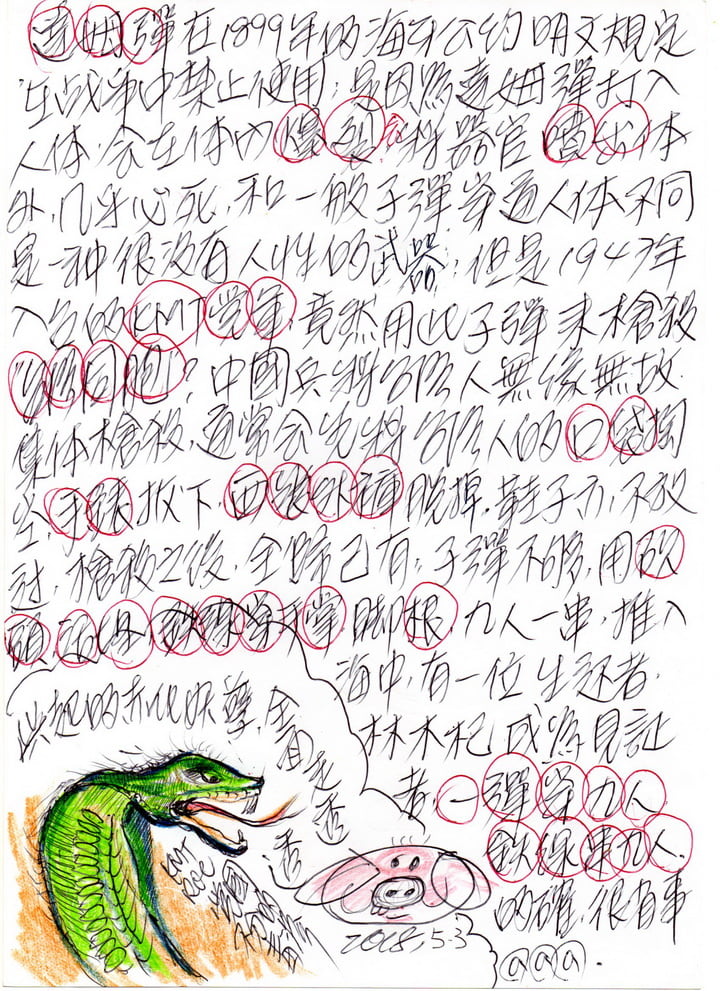 達姆彈在1899年的海牙公約明文規定
在战争中禁止使用;是因為達姆彈打入
人体,会在体內爆裂,将器官噴出体
外,几乎必死,和一般子彈穿過人体不同
是一种很没有人性的武器;但是1947年
入台的KMT党軍,竟然用此子彈来槍殺
台湾同胞?中國兵将台湾人無缘無故
集体槍殺,通常会先将台湾人的口袋掏
空,手錶拔下,西裝外褲脫掉,鞋子亦不放
过,槍殺之後,全歸己有;子彈不够,用砍
頭,活埋,鉄線穿手掌脚根,九人一串,推入
海中,有一位生还者,
林木杞成為見証
者,一彈穿九人
鉄線串九人,
的確,很有事
@@@.
共起的赤化妖孽,全
面毛
透透
KMT
ROC
2018,5.3